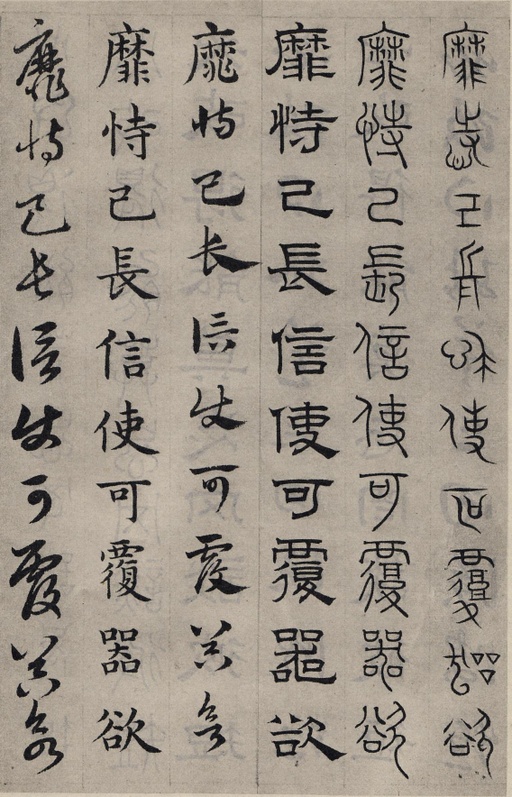 靡恃己長信使可覆器欲
靡恃己長信使可覆器欲
靡恃己長信使可覆器欲
靡恃己長信使可覆器欲
靡恃己長信使可覆器欲
靡恃己長信使可覆器欲